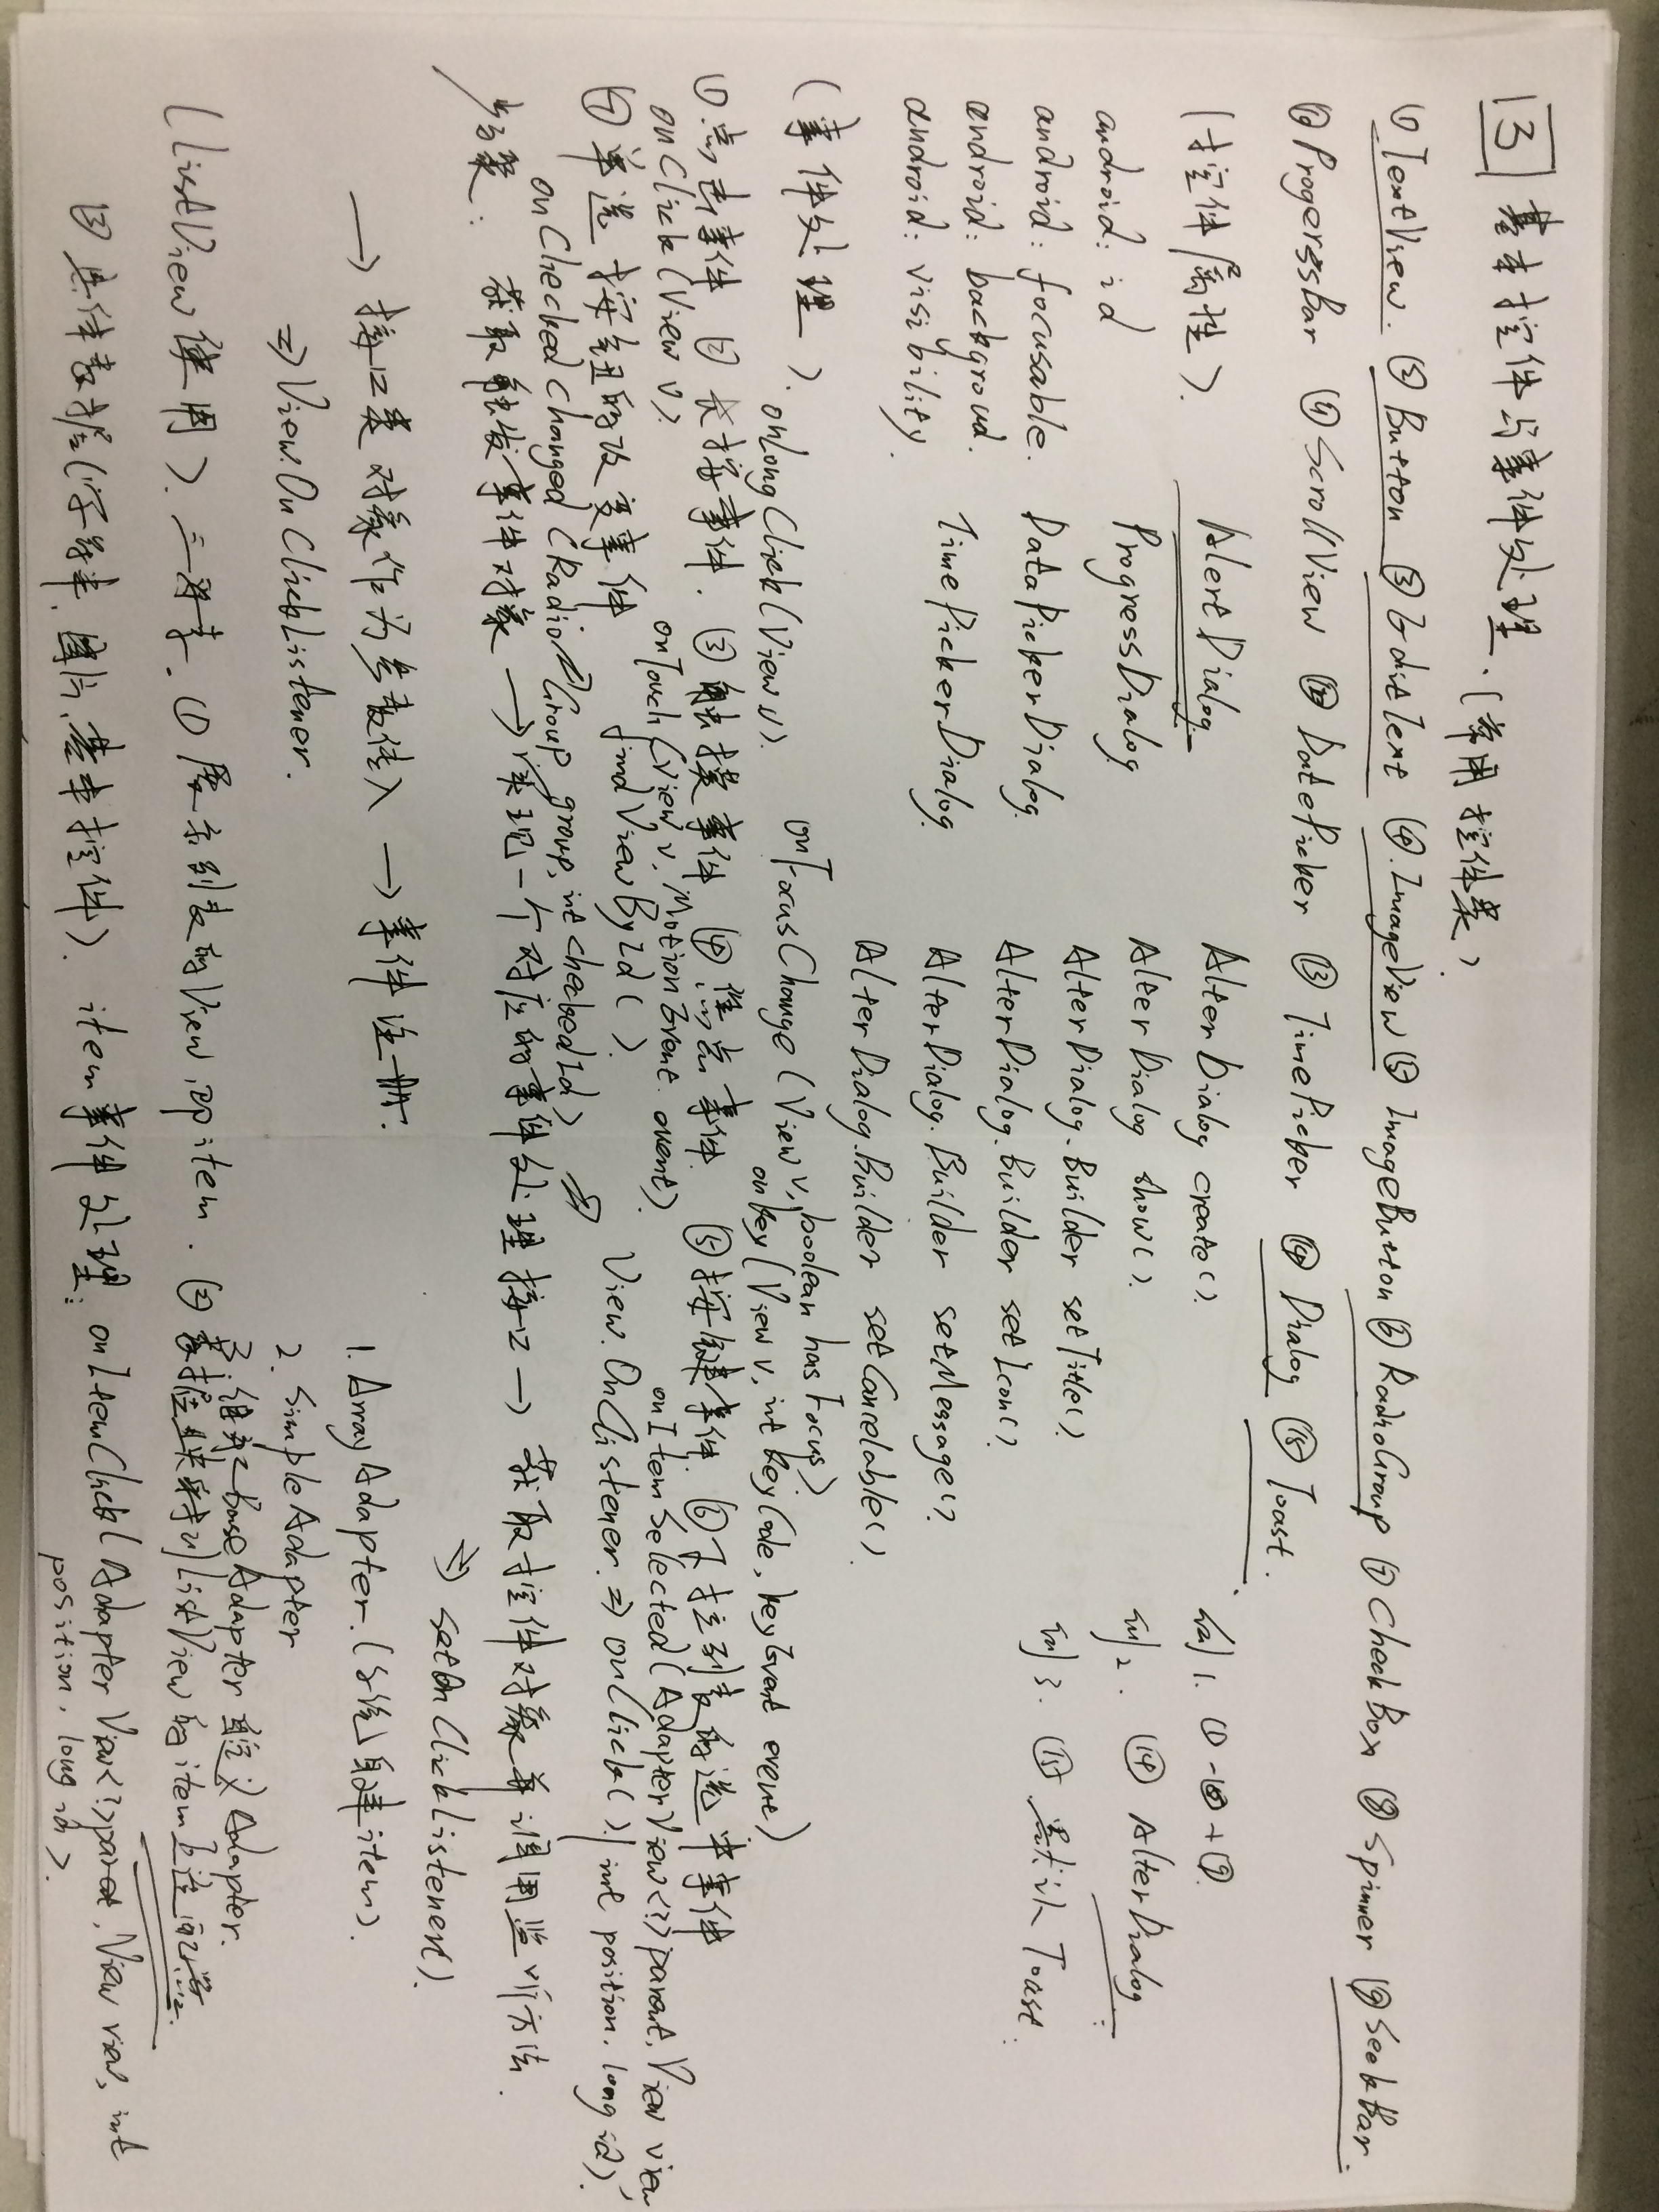 3 基本控件与事件处理.
(常用控件类).
① TextView. ② Button ③ EditText ④. ImageView ⑤ ImageButton ⑥ RadioGroup ⑦ CheckBox ⑧ Spinner ⑨ SeekBar.
⑩ ProgerssBar ⑪ ScrollView ⑫ DatePicker ⑬ TimePicker ⑭ Dialog ⑮ Toast.
(控件属性).
android: id
android: focusable.
android: backgroud.
android: visibility.
AlertDialog.
ProgressDialog
DataPickerDialog.
TimePickerDialog.
AlterDialog create().
AlterDialog show().
AlterDialog.Builder setTitle().
AlterDialog.Builder setIcon().
AlterDialog.Builder setMessage().
AlterDialog.Builder setCancelable().
例1. ①-⑥+⑨.
例2. ⑭ AlterDialog.
例3. ⑮ 默认 Toast.
(事件处理).
onLongClick(View v). onFocusChange(View v, boolean hasFocus)
onkey(View v, int keyCode, keyEvent event).
①点击事件 ② 长按事件. ③ 触摸事件 ④ 焦点事件. ⑤按键事件. ⑥下拉列表的选中事件
onClick(View v). onTouch(View v, MotionEvent event). onItemSelected(AdapterView<?>parent, View view,
int position, long id).
⑦ 单选按钮的改变事件 findViewById(). View.OnClistener. ⇒ onClick().
onCheckedChanged(RadioGroup group, int checkedId)
步骤: 获取触发事件对象 → 实现一个对应的事件处理接口 → 获取控件对象并调用监听方法.
⇒ setOnClickListener().
→ 接口类对象作为参数传入 → 事件注册.
⇒ View.OnClickListener.
1. ArrayAdapter.(系统自建item).
2. SimpleAdapter
3. 继承BaseAdapter 自定义Adapter.
(ListView使用). 三要素. ① 展示列表的View, 即item. ② 数据映射到ListView的item上适配器.
③ 具体数据(字符串, 图片, 基本控件). item事件处理: onItemClick(AdapterView<?>parent, View view, int
position, long id).